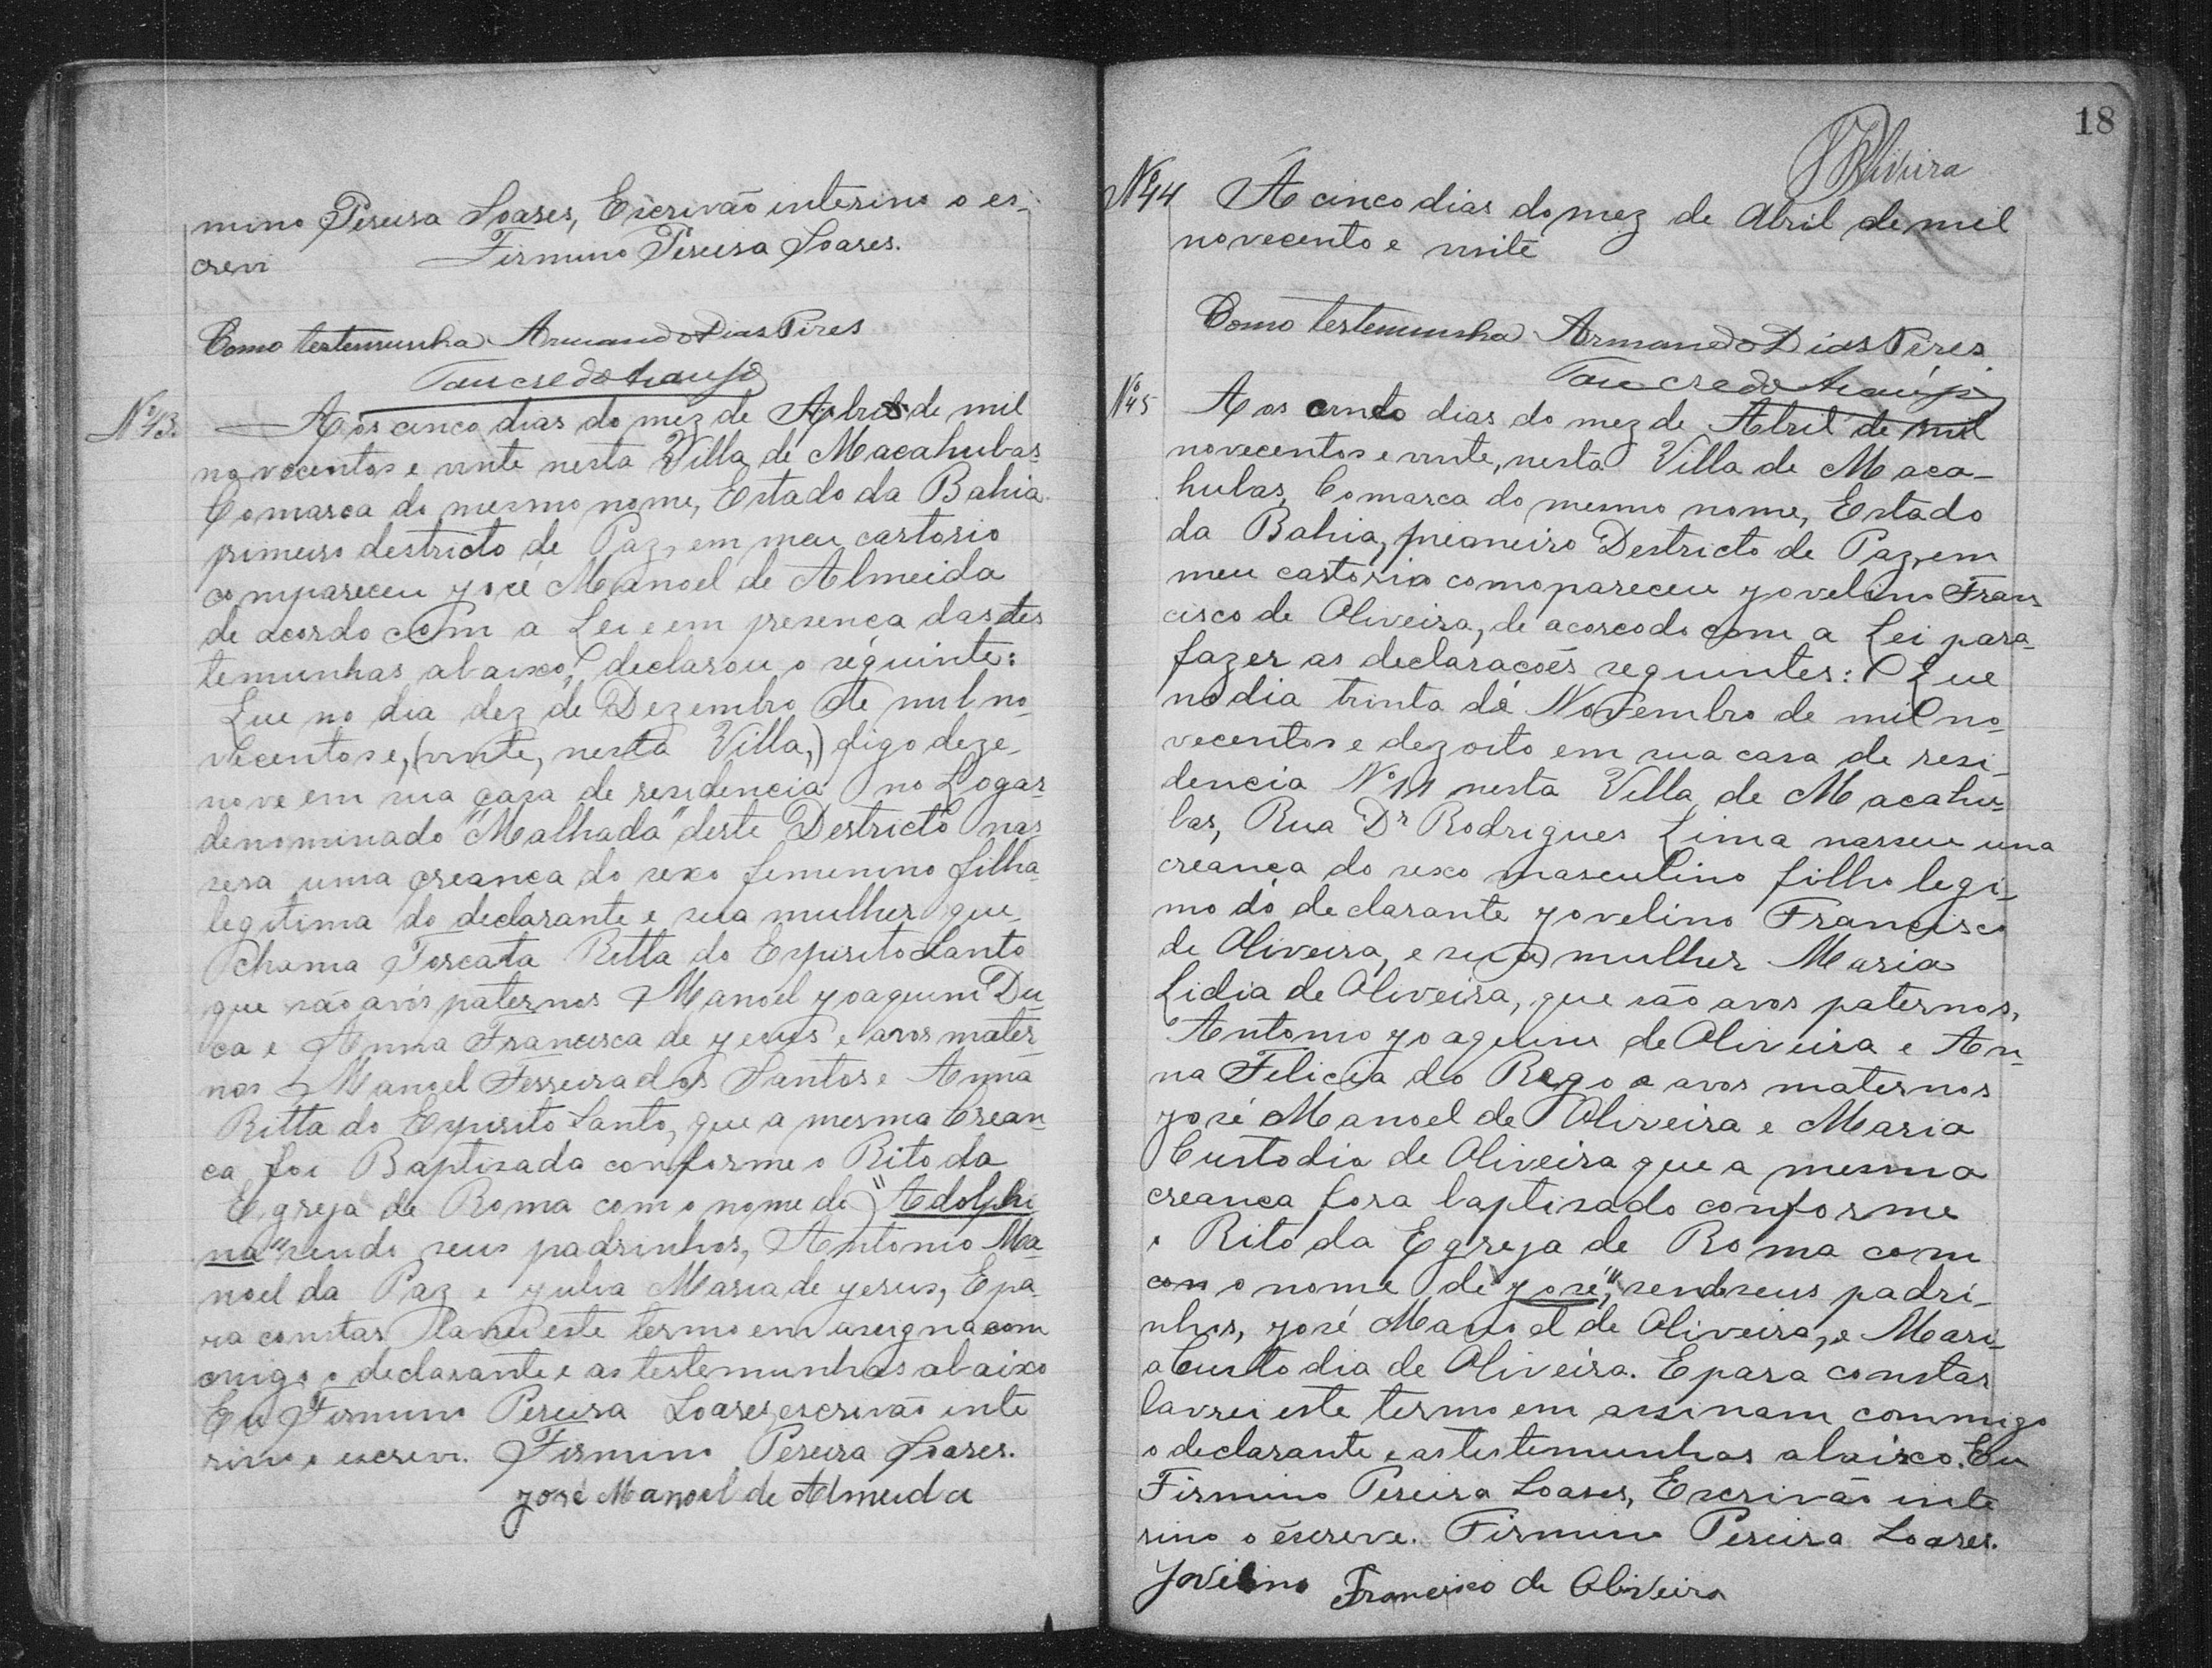 mino Pereira Soares, Escrivão interino o es-
crevi Firmino Pereira Soares.
Como testemunha Armando Dias Pires
Tancredo Araujo
Nº 43. Aos cinco dias do mez de Abril de mil
novecentos e vinte nesta Villa de Macahubas
Comarca do mesmo nome, Estado da Bahia
primeiro destricto de Paz, em meu cartorio
compareceu José Manoel de Almeida
de acordo com a Lei e em presença das tes
temunhas abaixo, declarou o seguinte:
Que no dia dez de Dezembro de mil no-
vecentos e, (vinte, nesta Villa,) digo deze-
nove em sua caza de residencia no Logar
denominado "Malhada" deste Destricto nas
sera uma creança do sexo femenino filha
legitima do declarante e sua mulher que
chama Torcata Ritta do Espirito Santo
que são avós paternos Manoel Joaquim Du-
ca e Anna Francisca de Jesus e avos mater-
nos Manoel Ferreira dos Santos e Anna
Ritta do Espirito Santo, que a mesma Crean-
ça foi Baptisada conforme o Rito da
Egreja de Roma com o nome de "Adolphi
na" sendo seus padrinhos, Antonio Ma-
noel da Paz e Julia Maria de Jesus, E pa-
ra constar lavrei este termo em asigna com
migo o declarante e as testemunhas abaixo
Eu Firmino Pereira Soares, escrivão inte
rino o escrevi. Firmino Pereira Soares.
José Manoel de Almeida
18
Oliveira
Nº 44 A cinco dias do mez de Abril de mil
novecento e vinte
Como testemunha Armando Dias Pires
Tancredo Araujo
Nº 45 Aos cinco dias do mez de Abril de mil
novecentos e vinte, nesta Villa de Maca-
hubas, Comarca do mesmo nome, Estado
da Bahia, primeiro Destricto de Paz, em
meu cartorio comopareceu Jovelino Fran-
cisco de Oliveira, de acorcodo com a Lei para
fazer as declaracoês seguintes: Que
no dia trinta de Novembro de mil no-
vecentos e dezoito em sua casa de resi-
dencia Nº 11 nesta Villa de Macahu-
bas, Rua Dr Rodrigues Lima nasseu una
creança do sexo masculino filho legi-
mo do declarante Jovelino Francisco
de Oliveira, e sua mulher Maria
Lidia de Oliveira, que são avos paternos,
Antonio Joaquim de Oliveira e An-
na Felicia do Rego e avos maternos
José Manoel de Oliveira e Maria
Custodia de Oliveira que a mesma
creança fora baptisado conforme
o Rito da Egreja de Roma com
con o nome de "José", sendo seus padri-
nhos, José Manoel de Oliveira, e Mari-
a Custodia de Oliveira. E para constar
lavrei este termo em assinam commigo
o declarante e as testemunhas abaixo. Eu
Firmino Pereira Soares, Escrivão inte
rino o escreve. Firmino Pereira Soares.
Jovilino Francisco de Oliveira